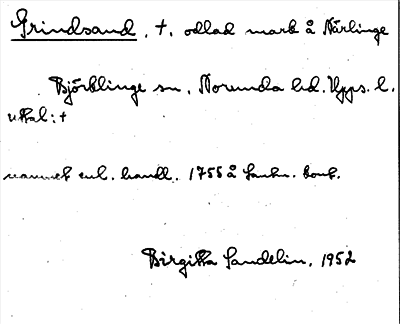 Grindsand, †, odlad mark å Närlinge
Björklinge sn, Norunda hd. Upps. l.
uttal: †
namnet enl. handl. 1755 å Lantm. kont.
Birgitta Sandelin, 1952